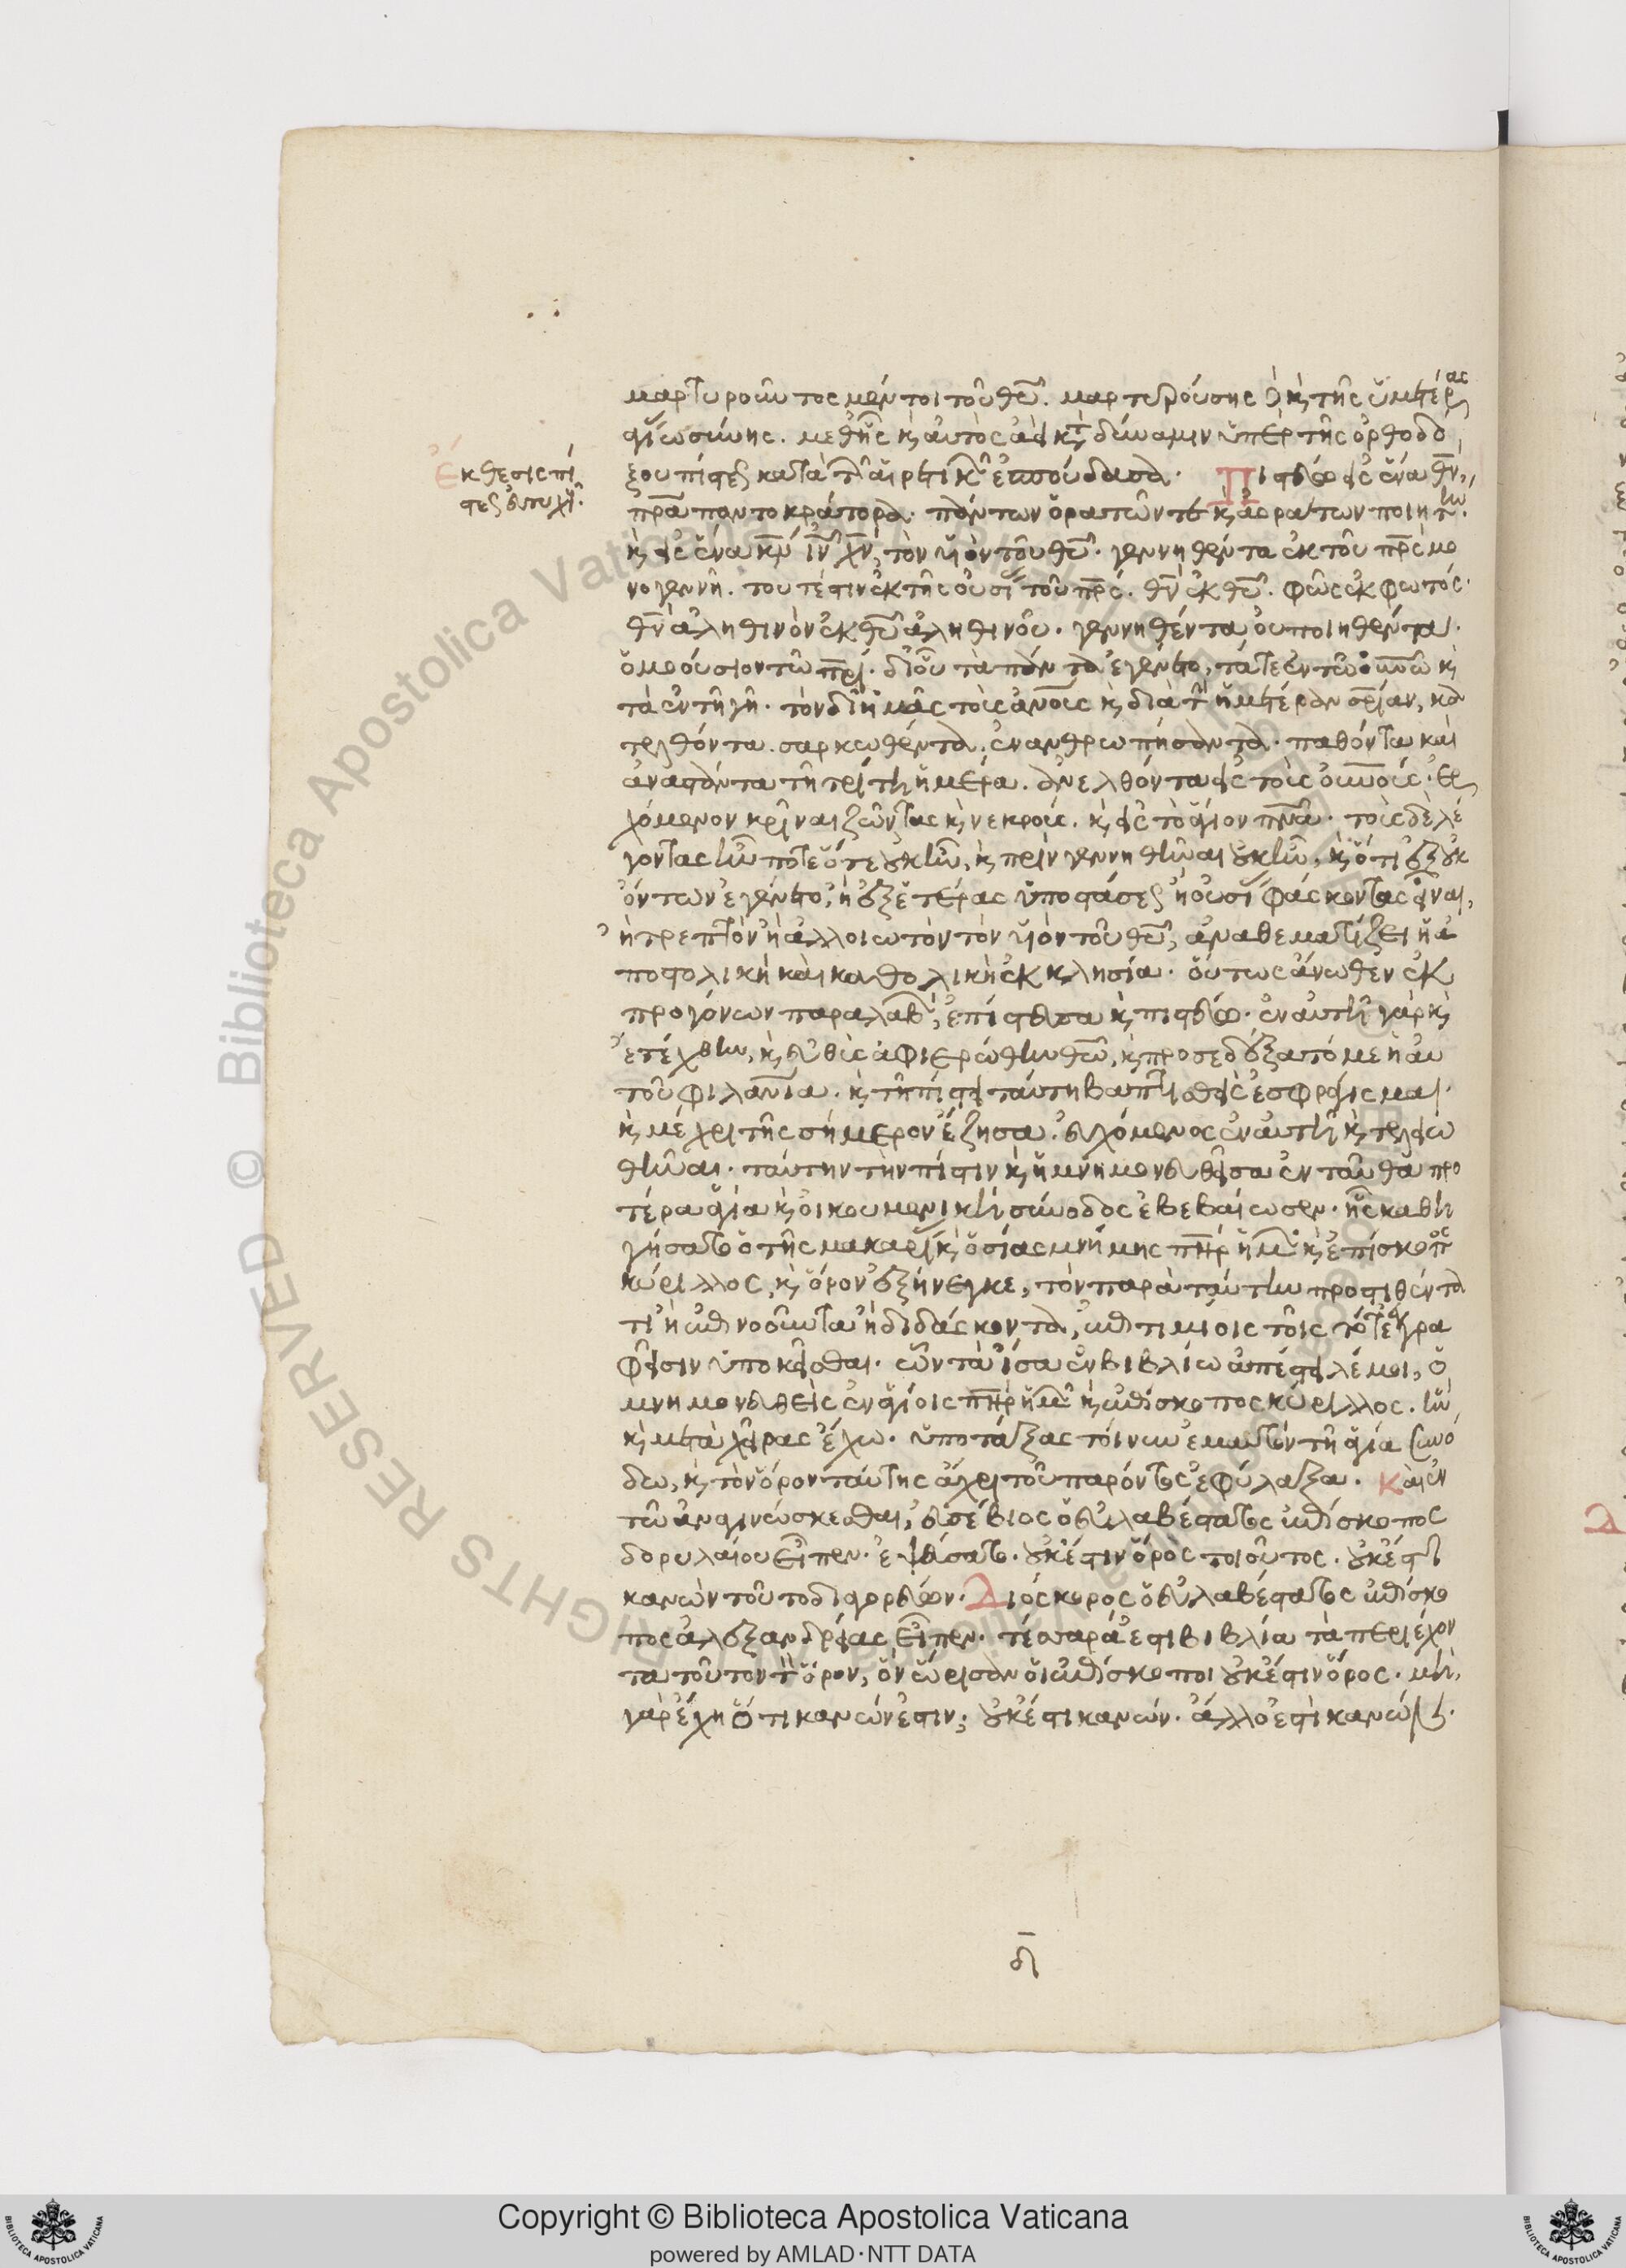 μαρτυροῦντος μέν τοι τοῦ θυ. μαρτυρούσης δὲ κ τῆς ὑμετέρας
ἁγιωσύνης. μεθ ἧς κ αὐτὸς ἀεὶ κτ δύναμιν ὑπὲρ τῆς ὀρθοδό
Έκθεσις πί
στεως εὐτυχοῦς.
ξου πίστεως κατὰ τῶν αἱρετικῶν ἐσπούδασα. Πιστεύω εἰς ἕνα θν,
πρα παντοκράτορα. πάντων ὁρατῶν τε κ ἀοράτων ποιητήν.
κ εἰς ἕνα κν ιν χν, τὸν υἱὸν τοῦ θυ. γεννηθέντα ἐκ τοῦ πρς μο
νογενῆ. τουτέστιν ἐκ τῆς οὐσίας τοῦ πρς. θν ἐκ θυ. φῶς ἐκ φωτός.
θν ἀληθινὸν ἐκ θυ ἀληθινοῦ. γεννηθέντα οὐ ποιηθέντα.
ὁμοούσιον τῶ πρι. δι οὗ τὰ πάντα ἐγένετο, τά τε ἐν τῶ οὐνῶ κ
τὰ ἐν τῆ γῆ. τὸν δι ἡμᾶς τοὺς ἀνους κ διὰ τὴν ἡμετέραν σριαν, κα
τελθόντα. σαρκωθέντα. ἐνανθρωπήσαντα. παθόντα καὶ
ἀναστάντα τῆ τρίτη ἡμέρα. ἀνελθόντα εἰς τοὺς οὐνούς. ἐρ
χόμενον κρίναι ζῶντας κ νεκρούς. κ εἰς τὸ ἅγιον πνα. τοὺς δὲ λέ
γοντας ἦν ποτε ὅτε οὐκ ἦν, κ πρὶν γεννηθῆναι οὐκ ἦν, κ ὅτι ἐξ οὐκ
ὄντων ἐγένετο, ἢ ἐξ ἑτέρας ὑποστάσεως ἢ οὐσίας φάσκοντας εἶναι,
ἢ τρεπτὸν ἢ ἀλλοιωτὸν τὸν υἱὸν τοῦ θυ, ἀναθεματίζει ἡ ἀ
ποστολικὴ καὶ καθολικὴ ἐκκλησία. οὕτως ἄνωθεν ἐκ
προγόνων παραλαβὼν, ἐπίστευσα κ πιστεύω. ἐν αὐτῆ γὰρ κ
ἐτέχθην, κ εὐθὺς ἀφιερώθην θῶ, κ προσεδέξατό με ἡ αὐ
τοῦ φιλανια. κ τῆ πίστει ταύτη βαπτισθεὶς ἐσφράγισμαι.
κ μέχρι τῆς σήμερον ἔζησα. εὐχόμενος ἐν αὐτῆ κ τελειω
θῆναι. ταύτην τὴν πίστιν κ ἡ μνημονευθεῖσα ἐνταῦθα προ
τέρα ἁγία κ οἰκουμενικὴ σύνοδος ἐβεβαίωσεν. ἧς καθη
γήσατο ὁ τῆς μακαρίας κ ὁσίας μνήμης πηρ ἡμῶν κ ἐπίσκοπος
κύριλλος, κ ὅρον ἐξήνεγκε, τὸν παρὰ ταύτην προστιθέντα
τὶ ἢ ἐπινοοῦντα ἢ διδάσκοντα, ἐπιτιμίοις τοῖς τότε ἐγγρα
φεῖσιν ὑποκεῖσθαι. ὧν τὰ ἴσα ἐν βιβλίω ἀπέστειλέ μοι, ὁ
μνημονευθεὶς ἐν ἁγίοις πηρ ἡμῶν κ ἐπίσκοπος κύριλλος. ἣν
κ μετὰ χεῖρας ἔχω. ὑποτάξας τοίνυν ἐμαυτὸν τῆ ἁγία συνό
δω, κ τὸν ὅρον ταύτης ἄχρι τοῦ παρόντος ἐφύλαξα. Καὶ ἐν
τῶ ἀναγινώσκεσθαι, εὐσέβιος ὁ εὐλαβέστατος ἐπίσκοπος
δορυλαίου εἶπεν. ἐψεύσατο. οὐκ ἔστιν ὅρος τοιοῦτος. οὐκ ἔστι
κανὼν τοῦτο διαγορεύων. Διόσκορος ὁ εὐλαβέστατος ἐπίσκο
πος ἀλεξανδρείας εἶπεν. τέσσαρά ἐστι βιβλία τὰ περιέχον
τα τοῦτον τὸν ὅρον, ὃν ὥρισαν οἱ ἐπίσκοποι οὐκ ἔστιν ὅρος. μὴ
γὰρ ἔχη ὅτι κανών ἐστιν; οὐκ ἔστι κανών. ἄλλο ἐστὶ κανὼν
δ
Copyright © Biblioteca Apostolica Vaticana
powered by AMLAD·NTT DATA